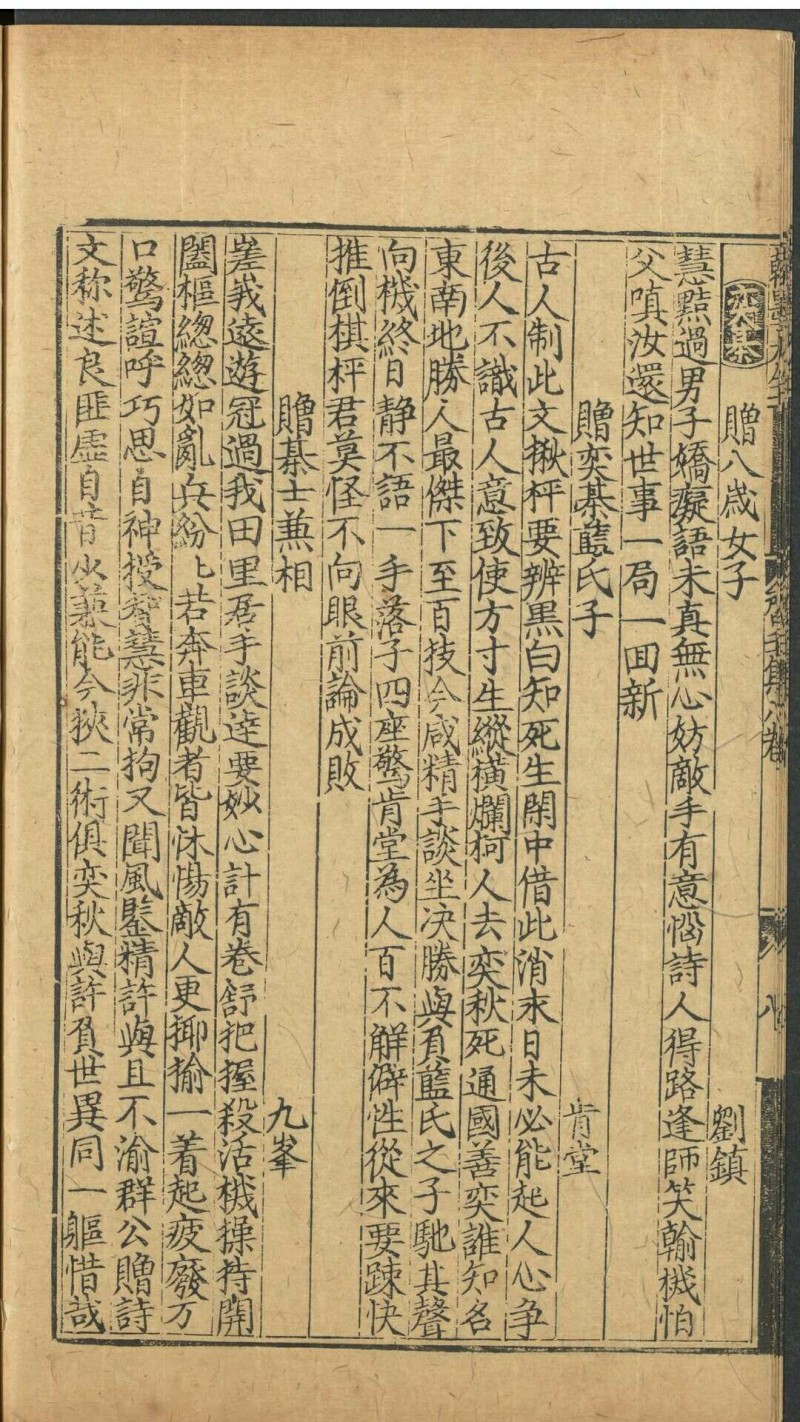 奕棊
贈八歲女子　劉鎮
慧黠過男子嬌癡語未真無心妨敵手有意惱詩人得路逢師笑輸機怕
父嗔汝還知世事一局一回新
贈奕棊藍氏子　肯堂
古人制此文揪枰要辨黑白知死生閑中借此消末日未必能起人心争
後人不識古人意致使方寸生縱橫爛柯人去奕秋死通國善奕誰知名
東南地勝人最傑下至百技今咸精手談坐决勝與負藍氏之子馳其聲
向機終日静不語一手落子四座驚肯堂為人百不解僻性從來要踈快
推倒棋枰君莫怪不向眼前論成敗
贈棊士兼相　九峯
峩遠遊冠過我田里居手談逹要妙心計有卷舒把握殺活機操持開
闔樞緫緫如亂兵紛匕若奔車觀者皆怵惕敵人更揶揄一着起疲癈万
口驚諠呼巧思自神授智慧非常拘又聞風鑒精許與且不渝群公贈詩
文称述良匪虛自昔少兼能今挾二術俱奕秋與許負世異同一軀惜哉